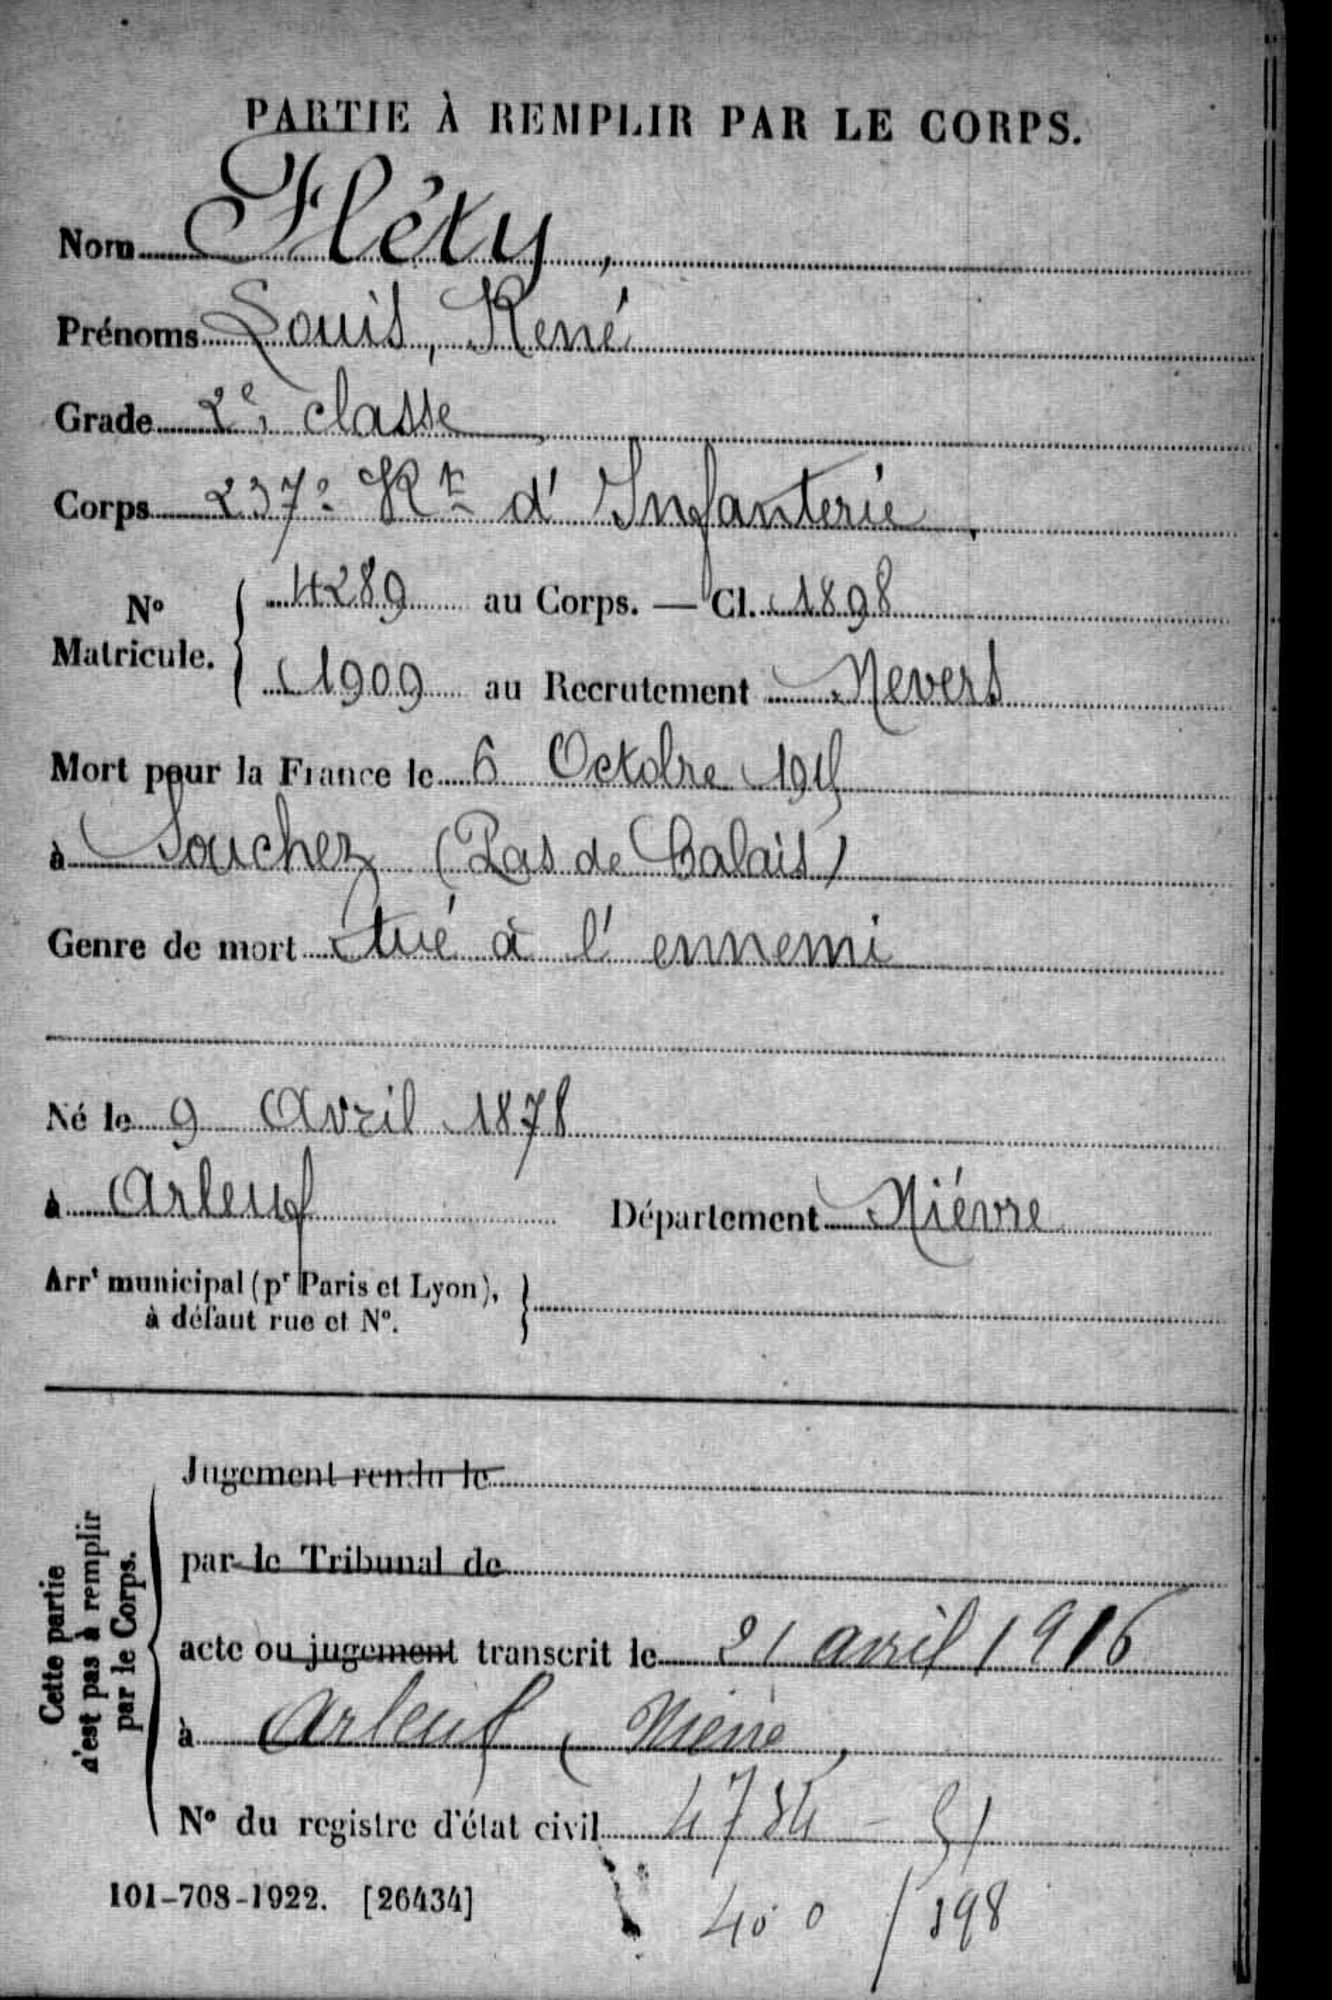 PARTIE À REMPLIR PAR LE CORPS.
Nom Fléty,
Prénoms Louis, René
Grade 2e classe
Corps 237e Rt d'Infanterie.
No Matricule. 4289 au Corps. — Cl. 1898
1909 au Recrutement Nevers
Mort pour la France le 6 Octobre 1915
à Souchez (Pas de Calais)
Genre de mort tué à l'ennemi
Né le 9 Avril 1878
à Arleuf Département Niévre
Arrt municipal (pr Paris et Lyon),
à défaut rue et No.
Cette partie
n'est pas à remplir
par le Corps.
Jugement rendu le
par le Tribunal de
acte ou jugement transcrit le 21 avril 1916
à Arleuf (Nievre
No du registre d'état civil 4734 - 51
101-708-1922. [26434]
400 / 198